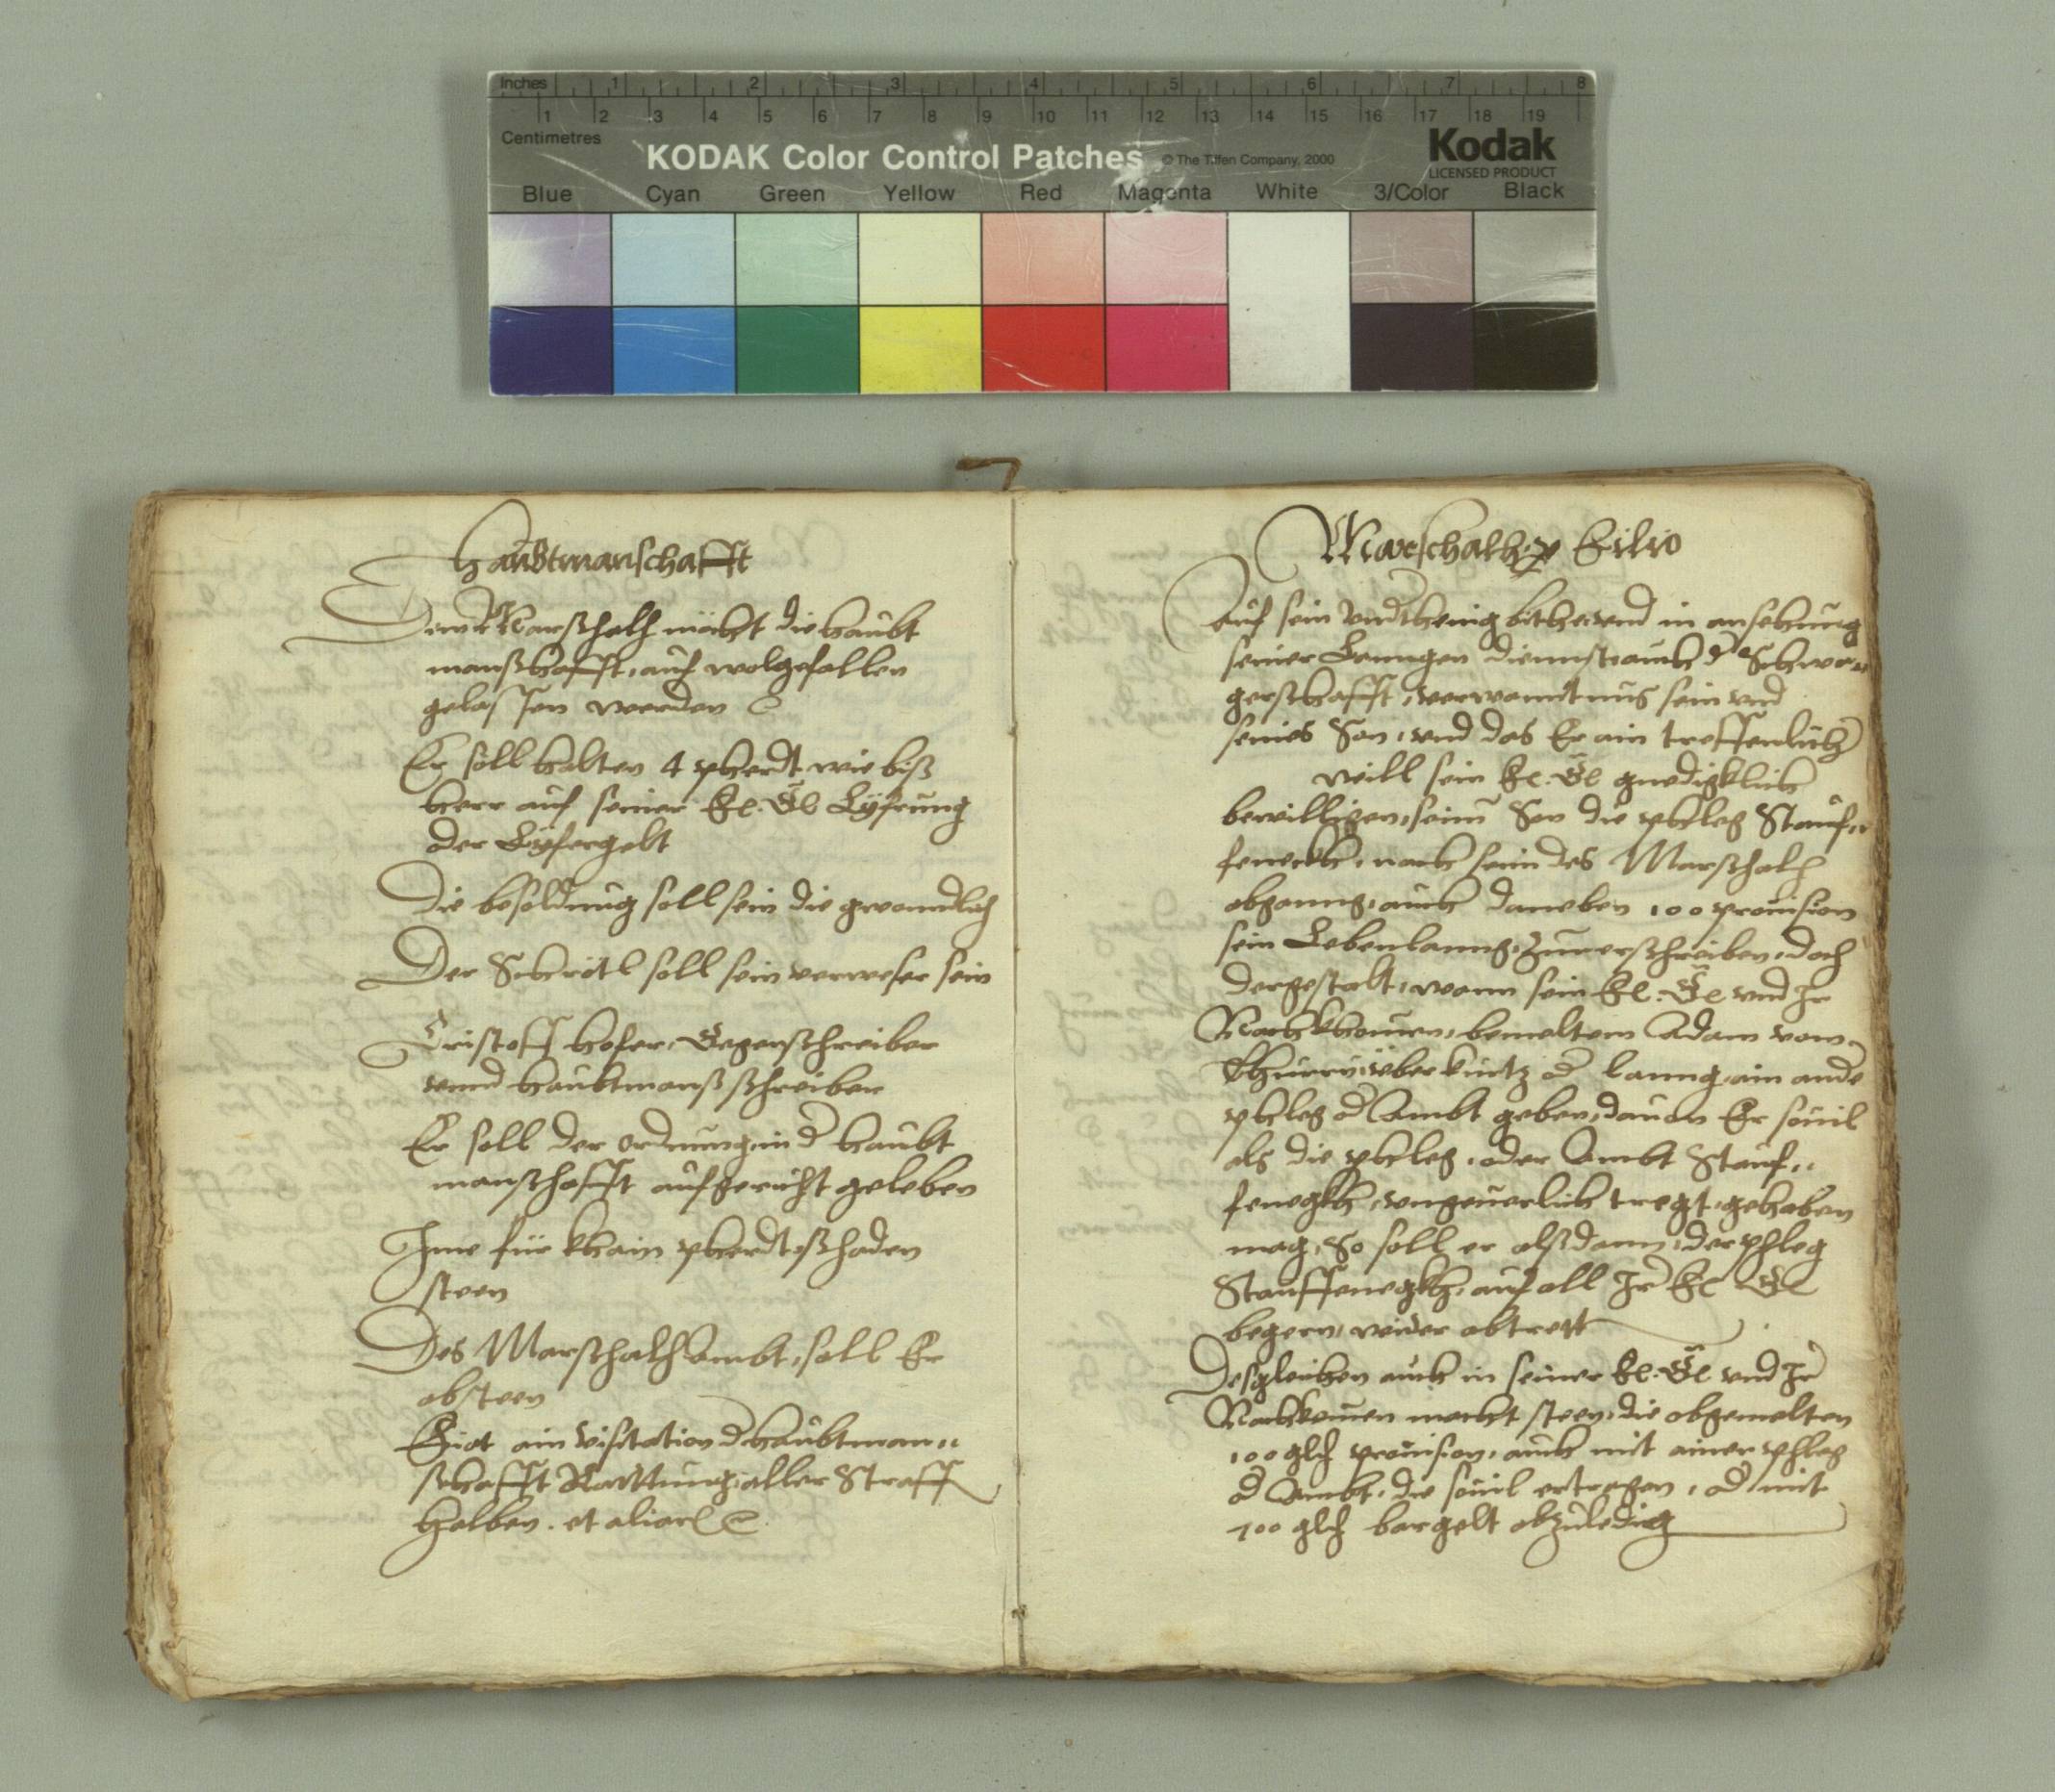 Inches 1 2 3 4 5 6 7 8
1 2 3 4 5 6 7 8 9 10 11 12 13 14 15 16 17 18 19
Centimetres
KODAK Color Control Patches © The Tiffen Company, 2000 Kodak
LICENSED PRODUCT
Blue Cyan Green Yellow Red Magenta White 3/Color Black
Haubtmanschafft
Dem Marschalh möcht die haubt
manschafft, auf wolgefallen
gelassen werden
Er soll halten 4 pherdt wie biß
herr auf seiner Lyfrung
oder Lyfergelt
Die besoldung soll sein die gwondlich
Der Schrötl soll sein verweser sein
Cristoff Hofer, Gegenschreiber
vnnd haubtmanschreiber
Er soll der ordnung, in d haubt
manschafft aufgericht geleben
Ime für khain pherdt schaden
steen
Des Marschalh ambt, soll Er
absteen
ain visitation d haubtman„
schafft Raittung, aller Straff
halben. et aliar
Marschalh Filio
Auf sein vndthenig bithe, vnd in ansehung
seiner Lanngen diennst, auch d Schwa„
gerschafft, verwanndtnus sein vnd
seines Son, vnd das Er ain treffenlich
will sein gnedigklich
bewilligen, seim Son die phleg Stauf„
feneckh, nach sein des Marschalh
abganng, auch daneben 100 prouision
sein Lebenlanng, zuuerschreiben, doch
dergestalt, wann sein vnd Ir
Nachkhomen, bemeltem Adam von
Thurn, über kurtz od lanng, ain ande
phleg od Ambt geben, dauon Er souil
als die phleg, oder Ambt Stauf„
fenegkh, vngeuerlich tregt, gehaben
mag, So soll er alßdann, der phleg
Stauffenegkh, auf all Ir
begern, wider abtrett
Desgleichen auch in seiner vnd Ir
Nachkomen macht steen, die obgemelten
100 prouision, auch mit ainer phleg
od Ambt, die souil ertragen, od mit
bargelt abzuledig